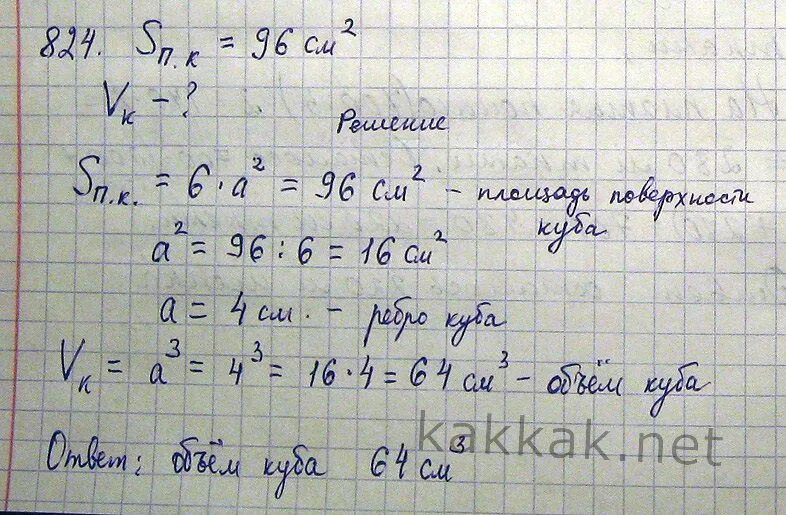 824. Sп.к = 96 см²
Vк - ?
Решение
Sп.к. = 6·a² = 96 см² - площадь поверхности
куба
a² = 96 : 6 = 16 см²
a = 4 см. - ребро куба
Vк = a³ = 4³ = 16·4 = 64 см³ - объём куба
kakkak.net
Ответ: объём куба 64 см³